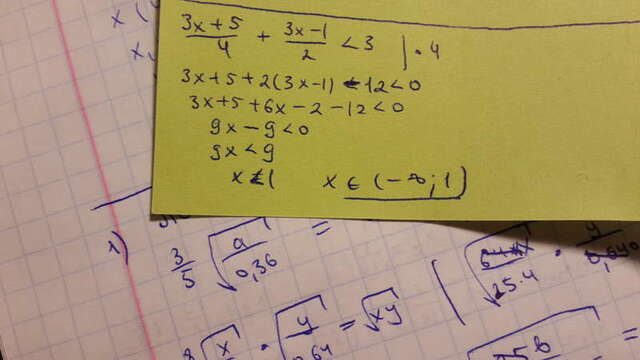 x (
x
(3x+5)/4 + (3x-1)/2 < 3 | · 4
3x+5+2(3x-1) - 12 < 0
3x+5+6x-2-12 < 0
9x-9 < 0
9x < 9
x < 1 x ∈ (-∞; 1)
1) 3/5 √(a/0,36) =
25·4 · y
√(x/ · √(y/0,64 = √xy